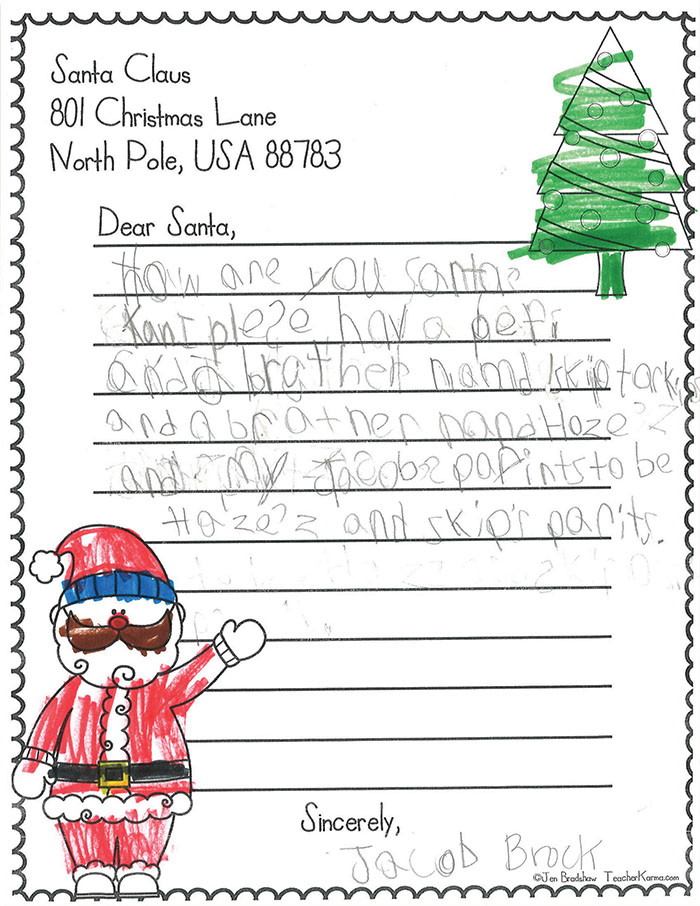 Santa Claus
801 Christmas Lane
North Pole, USA 88783
Dear Santa,
How are you santa?
have a
and a brather namd skip
and a brather namd Haze'z
and my Jacobs parints to be
Haze'z and skip's parits.
Sincerely,
Jacob Brock
©Jen Bradshaw TeacherKarma.com